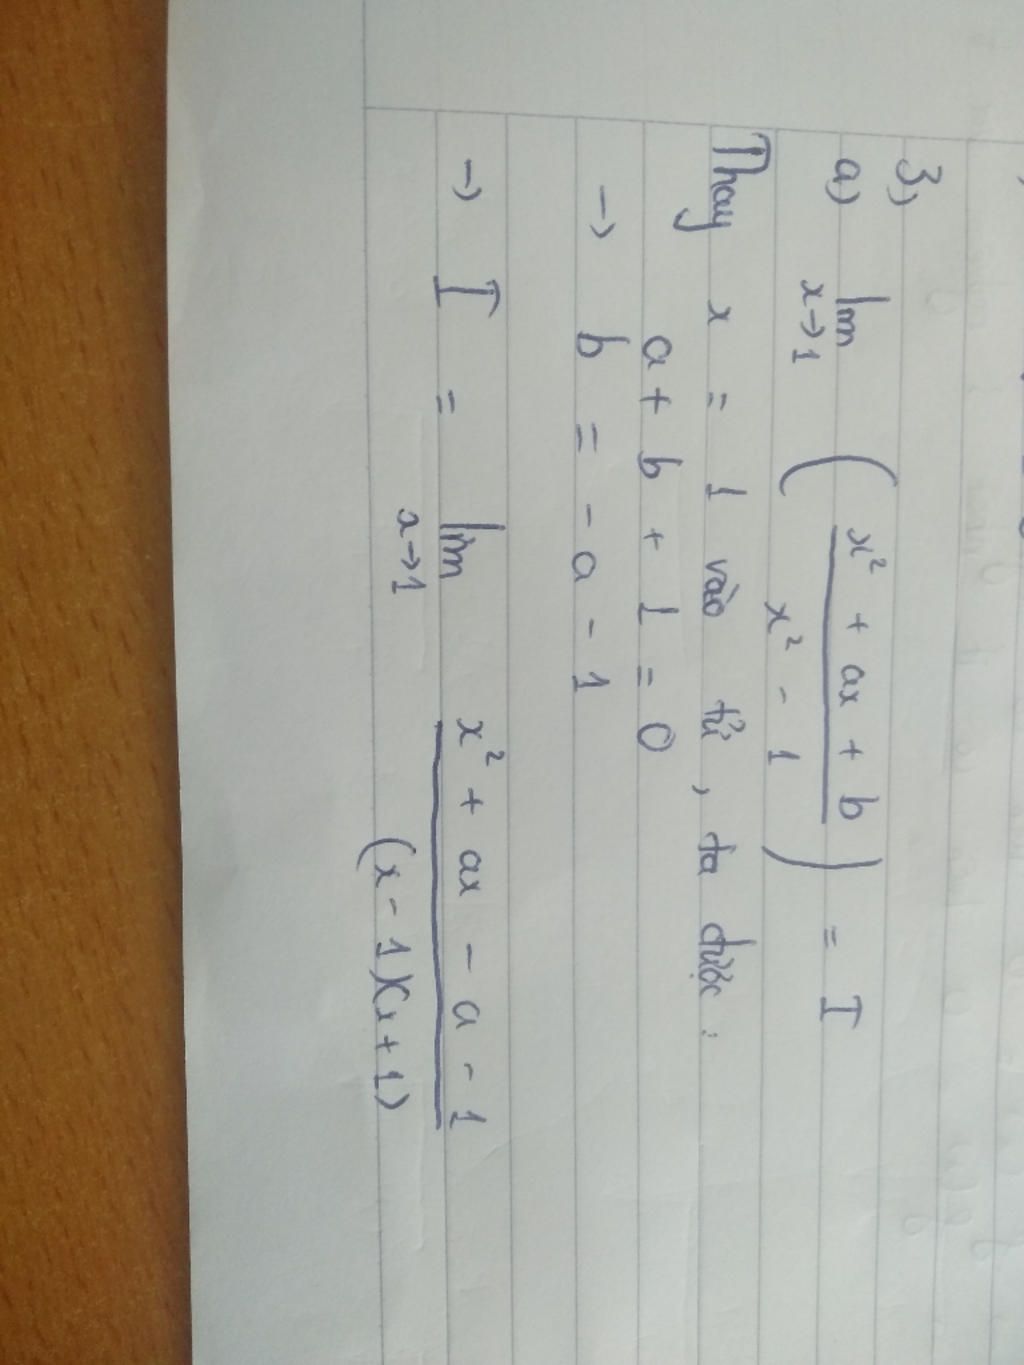 3)
a) lim x→1 ( (x² + ax + b) / (x² - 1) ) = I
Thay x = 1 vào tử, ta được:
a + b + 1 = 0
→ b = - a - 1
→ I = lim x→1 (x² + ax - a - 1) / ((x - 1)(x + 1))